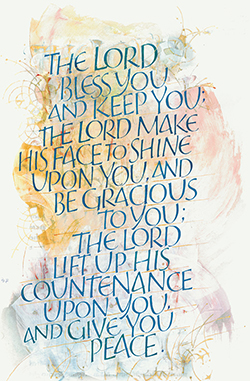 THE LORD
BLESS YOU
AND KEEP YOU;
THE LORD MAKE
HIS FACE TO SHINE
UPON YOU, AND
BE GRACIOUS
TO YOU;
THE LORD
LIFT UP HIS
COUNTENANCE
UPON YOU,
AND GIVE YOU
PEACE.